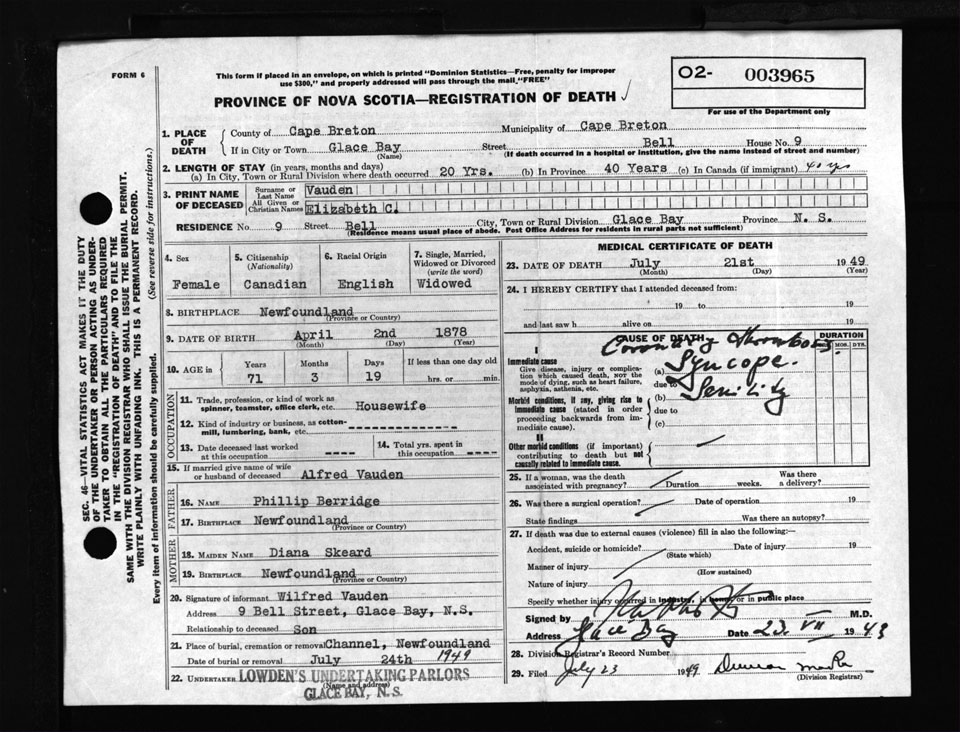 FORM 6
This form if placed in an envelope, on which is printed "Dominion Statistics—Free, penalty for improper
use $300," and properly addressed will pass through the mail "FREE"
O2- 003965
For use of the Department only
PROVINCE OF NOVA SCOTIA—REGISTRATION OF DEATH
1. PLACE OF DEATH
County of Cape Breton Municipality of Cape Breton
If in City or Town Glace Bay Street Bell House No. 9
(Name) (If death occurred in a hospital or institution, give the name instead of street and number)
2. LENGTH OF STAY (in years, months and days)
(a) In City, Town or Rural Division where death occurred 20 Yrs. (b) In Province 40 Years (c) In Canada (if immigrant) 40 yrs
3. PRINT NAME OF DECEASED
Surname or Last Name Vauden
All Given or Christian Names Elizabeth C.
RESIDENCE No 9 Street Bell City, Town or Rural Division Glace Bay Province N. S.
(Residence means usual place of abode. Post Office Address for residents in rural parts not sufficient)
4. Sex
Female
5. Citizenship (Nationality)
Canadian
6. Racial Origin
English
7. Single, Married, Widowed or Divorced (write the word)
Widowed
8. BIRTHPLACE Newfoundland
(Province or Country)
9. DATE OF BIRTH April 2nd 1878
(Month) (Day) (Year)
10. AGE in Years Months Days If less than one day old
71 3 19 hrs. or min.
OCCUPATION
11. Trade, profession, or kind of work as
spinner, teamster, office clerk, etc. Housewife
12. Kind of industry or business, as cotton-
mill, lumbering, bank, etc.
13. Date deceased last worked
at this occupation ----
14. Total yrs. spent in
this occupation ----
15. If married give name of wife
or husband of deceased Alfred Vauden
FATHER
16. NAME Phillip Berridge
17. BIRTHPLACE Newfoundland
(Province or Country)
MOTHER
18. MAIDEN NAME Diana Skeard
19. BIRTHPLACE Newfoundland
(Province or Country)
20. Signature of informant Wilfred Vauden
Address 9 Bell Street, Glace Bay, N.S.
Relationship to deceased Son
21. Place of burial, cremation or removal Channel, Newfoundland
Date of burial or removal July 24th 1949
22. UNDERTAKER LOWDEN'S UNDERTAKING PARLORS
(Name and address)
GLACE BAY, N. S.
MEDICAL CERTIFICATE OF DEATH
23. DATE OF DEATH July 21st 1949
(Month) (Day) (Year)
24. I HEREBY CERTIFY that I attended deceased from:
19 to 19
and last saw h alive on 19
CAUSE OF DEATH
DURATION
MOS. DYS.
I
Immediate cause
Give disease, injury or complication which caused death, NOT the mode of dying, such as heart failure, asphyxia, asthenia, etc.
Coronary Thrombosis
(a) Syncope.
due to
Morbid conditions, if any, giving rise to immediate cause (stated in order proceeding backwards from immediate cause).
(b) Senility
due to
(c)
II
Other morbid conditions (if important) contributing to death but not causally related to immediate cause.
25. If a woman, was the death
associated with pregnancy? Duration weeks. Was there a delivery?
26. Was there a surgical operation? Date of operation 19
State findings Was there an autopsy?
27. If death was due to external causes (violence) fill in also the following:—
Accident, suicide or homicide? Date of injury 19
(State which)
Manner of injury
(How sustained)
Nature of injury
Specify whether injury occurred in industry, in home, or in public place
Signed by M.D.
Address Glace Bay Date 23 VII 1943
28. Division Registrar's Record Number
29. Filed July 23 1949 Duncan
(Division Registrar)
SEC. 46—VITAL STATISTICS ACT MAKES IT THE DUTY
OF THE UNDERTAKER OR PERSON ACTING AS UNDER-
TAKER TO OBTAIN ALL THE PARTICULARS REQUIRED
IN THE "REGISTRATION OF DEATH" AND TO FILE THE
SAME WITH THE DIVISION REGISTRAR WHO SHALL ISSUE THE BURIAL PERMIT.
WRITE PLAINLY WITH UNFADING INK. THIS IS A PERMANENT RECORD.
Every item of information should be carefully supplied. (See reverse side for instructions.)